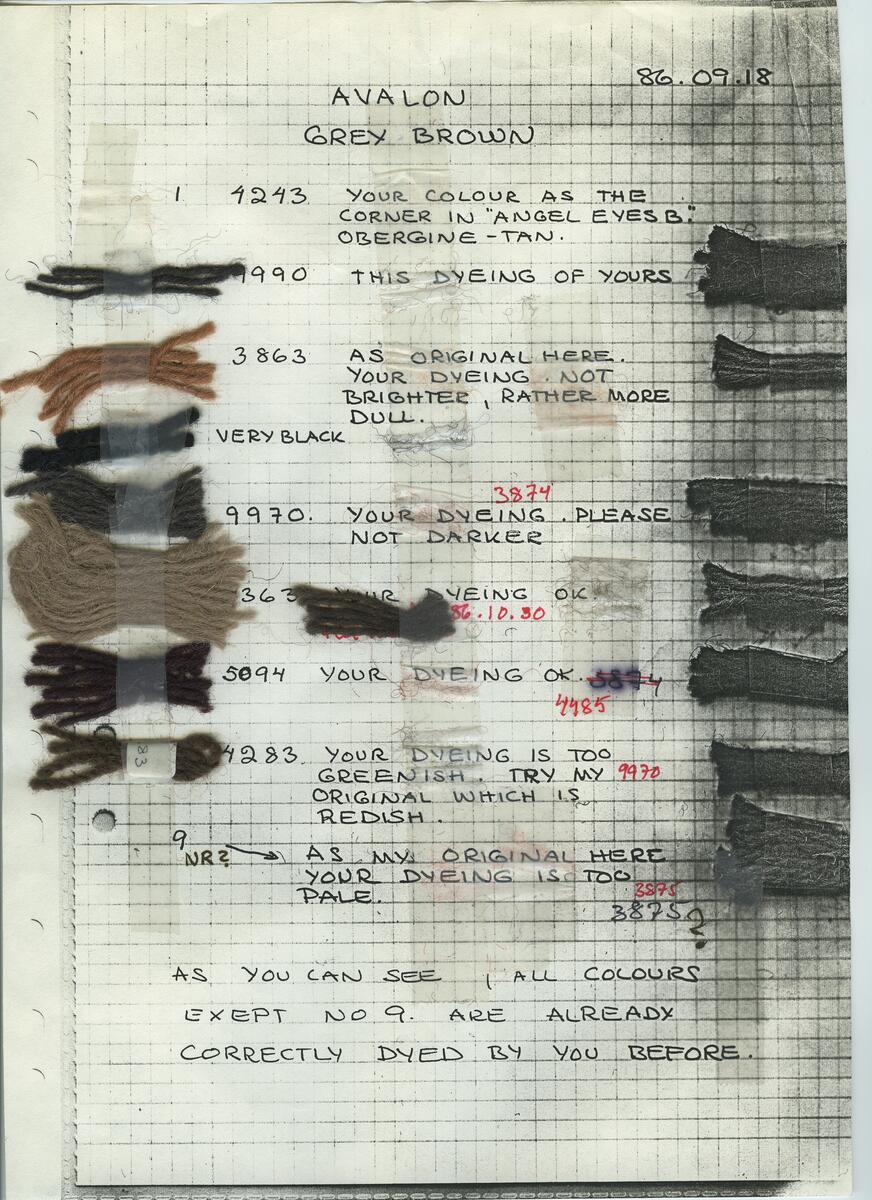 86.09.18
AVALON
GREY BROWN
1 4243 YOUR COLOUR AS THE
CORNER IN "ANGEL EYES B."
OBERGINE - TAN.
9990 THIS DYEING OF YOURS
3863 AS ORIGINAL HERE.
YOUR DYEING NOT
BRIGHTER, RATHER MORE
DULL.
VERY BLACK
3874
9970. YOUR DYEING. PLEASE
NOT DARKER
363 DYEING OK.
86.10.30
5094 YOUR DYEING OK.
4485
4283 YOUR DYEING IS TOO
GREENISH. TRY MY 9970
ORIGINAL WHICH IS
REDISH.
83
9
NR? AS MY ORIGINAL HERE
YOUR DYEING IS TOO
PALE. 3875
3875?
AS YOU CAN SEE, ALL COLOURS
EXEPT NO 9. ARE ALREADY
CORRECTLY DYED BY YOU BEFORE.